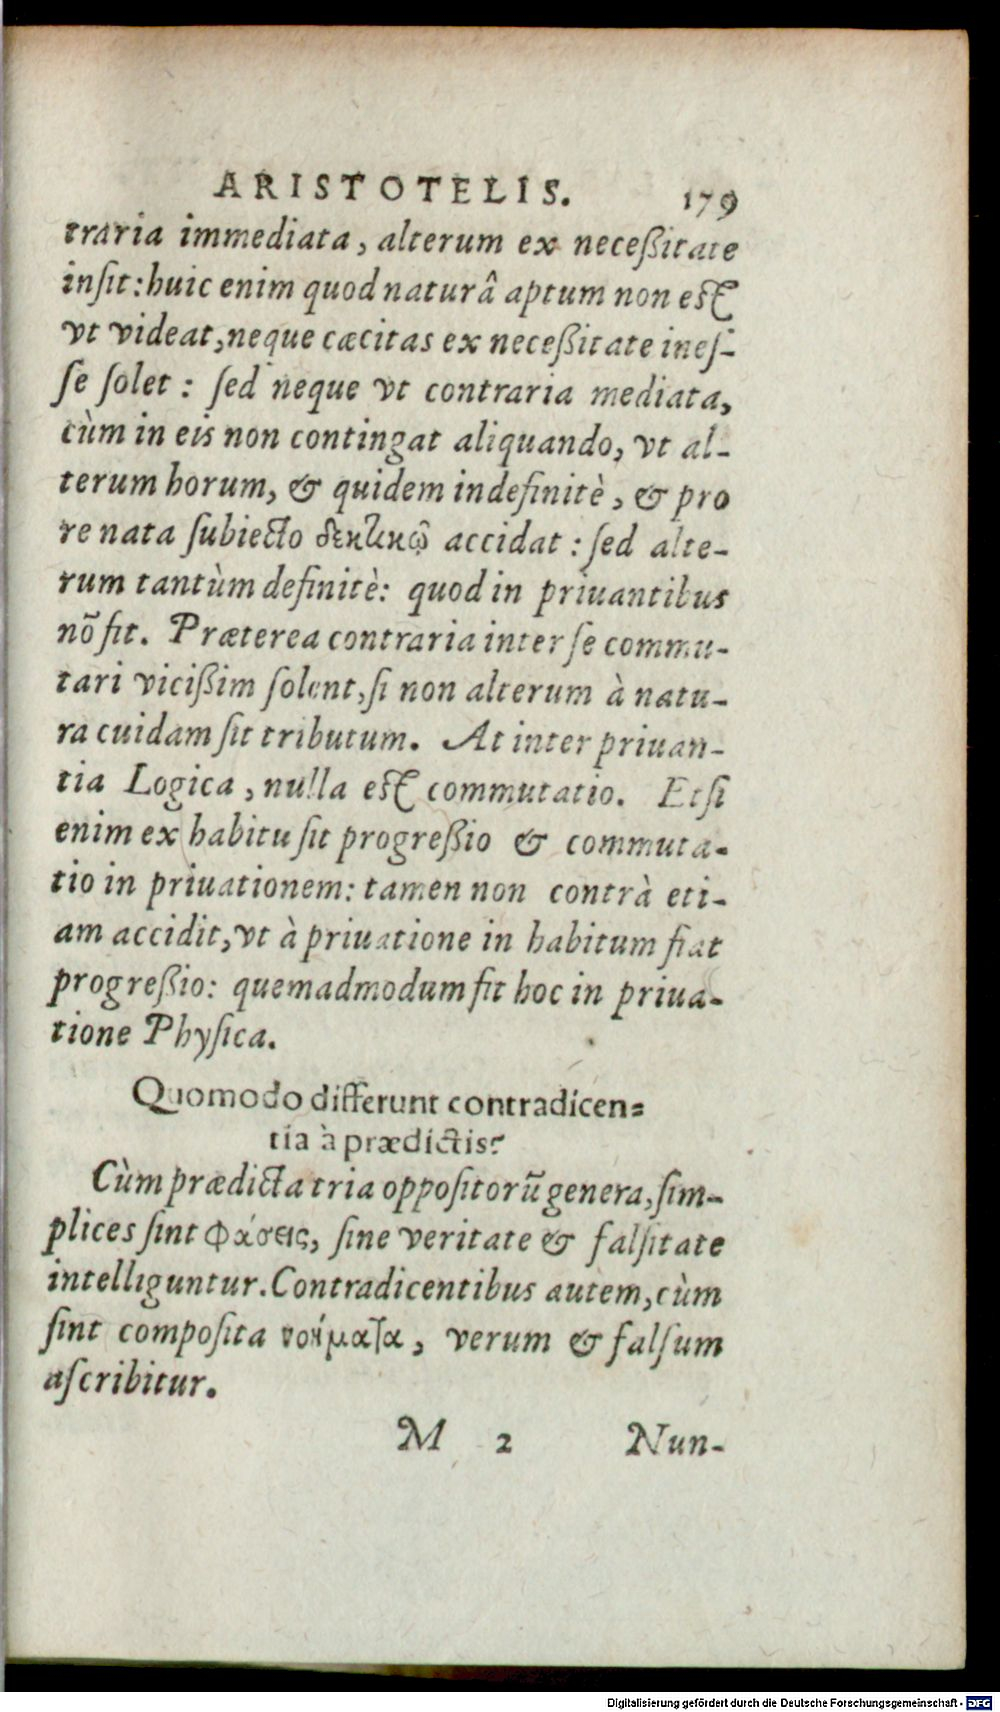 ARISTOTELIS. 179
traria immediata, alterum ex neceßitate
inſit: huic enim quod naturâ aptum non eſt
vt videat, neque cæcitas ex neceßitate ineſ-
ſe ſolet : ſed neque vt contraria mediata,
cùm in eis non contingat aliquando, vt al-
terum horum, & quidem indefinitè, & pro
re nata ſubiecto δεκτικῷ accidat : ſed alte-
rum tantùm definitè: quod in priuantibus
nõ fit. Præterea contraria inter ſe commu-
tari vicißim ſolent, ſi non alterum à natu-
ra cuidam ſit tributum. At inter priuan-
tia Logica, nulla eſt commutatio. Etſi
enim ex habitu ſit progreßio & commuta-
tio in priuationem: tamen non contrà eti-
am accidit, vt à priuatione in habitum fiat
progreßio: quemadmodum fit hoc in priua-
tione Phyſica.
Quomodo differunt contradicen=
tia à prædictis?
Cùm prædicta tria oppoſitorũ genera, ſim-
plices ſint φάσεις, ſine veritate & falſitate
intelliguntur. Contradicentibus autem, cùm
ſint compoſita νοήματα, verum & falſum
aſcribitur.
M 2 Nun-
Digitalisierung gefördert durch die Deutsche Forschungsgemeinschaft - DFG